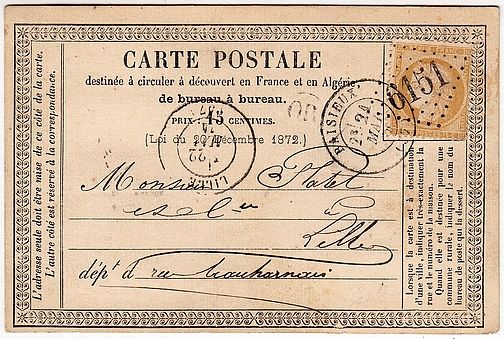 CARTE POSTALE
destinée à circuler à découvert en France et en Algérie
de bureau à bureau.
PRIX: 15 CENTIMES.
(Loi du 20 Décembre 1872.)
L'adresse seule doit être mise de ce côté de la carte.
L'autre côté est réservé à la correspondance.
Lorsque la carte est à destination
d'une ville, indiquer très-exactement la
rue et le numéro de la maison.
Quand elle est destinée pour une
commune rurale, indiquer le nom du
bureau de poste qui la dessert.
BAISIEUX
24
6151
OR
LILLE
Monsieur
Lille
dépt. d rue